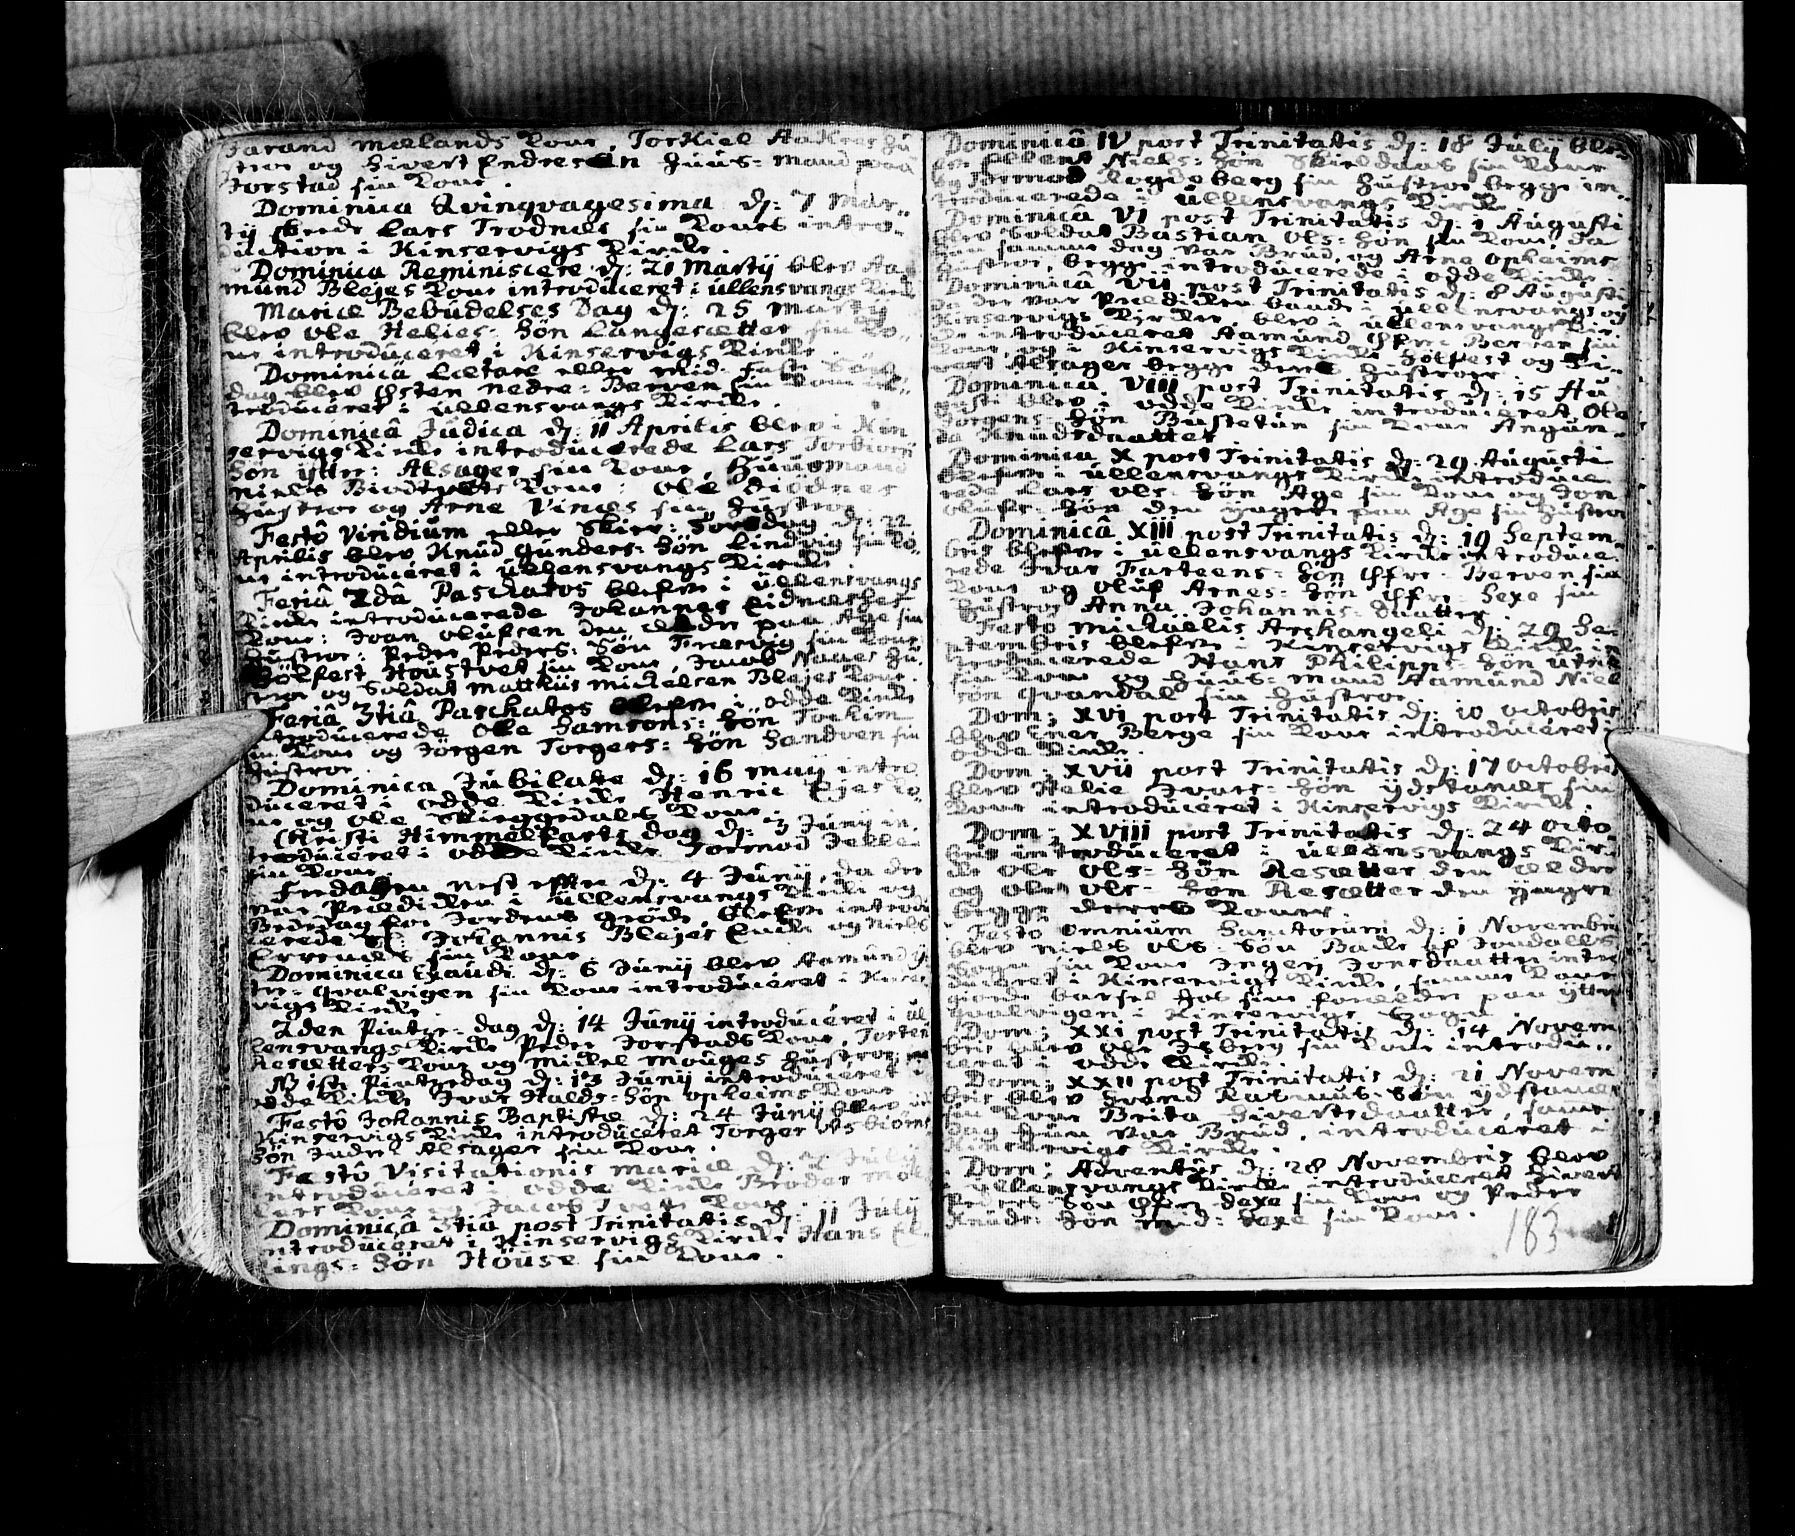 Farand Mælands Kone, Torkiel Aakres Hu
stroe og Sivert Endresen Huus-mand paa
Jorstad sin Kone.
Dominica Qvinqvagesima d: 7 Mar-
tij skeede Lars Trodnæs sin Kones intro-
duction i Kinservigs Kirke.
Dominica Reminiscere d: 21 Martij blev Aa-
mund Blejes Kone introduceret i Ullensvangs Kirke
Mariæ Bebudelses Dag d: 25 Martij
blev Ole Helies-Søn Langesætter sin Ko-
ne introduceret i Kinservigs Kirke.
Dominica Lætare eller Mid-faste
dag blev Østen Nedre-Berven sin Kone in-
troduceret i Ullensvangs Kirke.
Dominicâ Judica d: 11 Aprilis blev i Kin
servigs Kirke introducerede Lars Torbiørn
Søn yttre Alsager sin Kone, Huusmand
Niels Kone: Ole Diødnes
Hustroe og Arne Vines sin Hustroe.
Festô Viridium eller Skier-Torsdag d: 22
Aprilis blev Knud Gunders-Søn Lindvig sin Ko-
ne introduceret i Ullensvangs Kirke.
Feriâ 2dâ Paschatos blefve i Ullensvangs
Kirke introducerede Johannes Eidnæshes
Kone: Joan Olufsen den ældre paa Age sin
Hustroe: Peder Peders-Søn Træervig sin Kone
Sølfest Houstvet sin Kone, Jacob Naaes Hu-
stroe og Soldat Matthis Michelsen Blejes Kone.
Feriâ 3tiâ Paschatos blefve i Odde Kirke
introducerede Ole Samsons-Søn Tockim
sin Kone og Jörgen Torgers-Søn Sandven sin
Hustroe.
Dominica Jubilate d: 16 Maij intro
duceret i Odde Kirke Henric Ejes Ko-
ne og Ole Skieggedals Kone.
Christi Himmelfarts dag d: 3 Junij in-
troduceret i Odde Kirke Tormod Jelle
sin Kone.
Fredagen nest efter d: 4 Junij, da der
var Prædiken i Ullensvangs Kirke og
Bededag for Jordens grøde, blefve introdu
cerede Johannis Blejes Enke og Niels
sin Kone.
Dominica Exaudi d: 6 Junij blev Aamund y-
tre-Qvalvigen sin Kone introduceret i Kinser
vigs Kirke.
2den Pintze-dag d: 14 Junij introduceret i Ul
lensvangs Kirke Peder Jorstads Kone, Torsten
Resætters Kone og Mickel Mouges Hustroe
NB 1ste Pintzedag d: 13 Junij introduceret i
Odde Kirke Ivar Halds-Søn Opheims Kone
Festô Johannis Baptistæ d: 24 Junij blev i
Kinservigs Kirke introduceret Torger Asbiørns
Søn Indre Alsager sin Kone.
Festô Visitationis Mariæ d: 2 Julij
introduceret i Odde Kirke Broder
Kone og Jacob Kone.
Dominicâ 3tiâ post Trinitatis d: 11 Julij
introduceret i Kinservigs Kirke Hans El-
lings-Søn Höuse sin Kone.
Dominicâ IV post Trinitatis d: 18 Julij ble-
ve Ellent Niels-Søn Skieldaas sin Kone
og Tormod Rogdeberg sin Hustroe begge in-
troducerede i Ullensvangs Kirke.
Dominicâ VI post Trinitatis d: 1 Augusti
blev Soldat Bastian Ols-Søn sin Kone, da
hun samme dag var Brud, og Arne Opheims
Hustroe, begge introducerede i Odde Kirke
Dominicâ VII post Trinitatis d: 8 Augusti
da der var Prædiken baade i Ullensvangs og
Kinservigs Kirker, blev i Ullensvangs Kir-
ke introduceret Aamund Øfre Berven sin
Kone, og i Kinservigs Kirke Sølfest og Si-
vert Alsager begge deres Hustroer.
Dominica VIII post Trinitatis d: 15 Au
gusti blev i Odde Kirke introduceret Ole
Jorgens-Søn Bustetun sin Kone Angun-
da Knudsdaatter
Dominica X post Trinitatis d: 29 Augusti
blefve i Ullensvangs Kirke introduce-
rede Lars Ols-Søn Age sin Kone og Jon
Olufs-Søn den yngre paa Age sin Hustroe
Dominicâ XIII post Trinitatis d: 19 Septem-
bris blefve i Ullensvangs Kirke introduce-
rede Ivar Farteens-Søn Øfre-Berven sin
Kone og Oluf Arnes-Søn Øfre-Sexe sin
Hustroe Anna Johannis-daatter
Festo Michaelis Archangeli d: 29 Se-
ptembris blefve i Kinservigs Kirke in
troducerede Hans Philipps-Søn Utne
sin Kone og Huus-mand Aamund Niel
Søn Qvandal sin Hustroe.
Dom: XVI post Trinitatis d: 10 Octobris
blev Berge sin Kone introduceret i
Odde Kirke.
Dom: XVII post Trinitatis d: 17 Octobris
blev Helie Ivars-Søn Ydstanes sin
Kone introduceret i Kinservigs Kirke.
Dom: XVIII post Trinitatis d: 24 Octo-
bris introduceret i Ullensvangs Kir-
ke Ole Ols-Søn Resætter den ældre
og Ole Ols-Søn Resætter den yngre
begge deres Koner.
Festo Omnium Sanctorum d: 1 Novembris
blev Niels Ols-Søn Bakke af Jondals
Sogn sin Kone Ingerj Jonsdaatter intro
duceret i Kinservigs Kirke, samme Kone
giorde barsel hos sine forældre paa Yttre
Qvalvigen i Kinservigs Sogn.
Dom: XXI post Trinitatis d: 14 Novem
bris blev Ole Isberg sin Kone introdu-
ceret i Odde Kirke.
Dom: XXII post Trinitatis d: 21 Novem
bris blev Svend Rasmus-Søn Ydstanes
sin Kone Brita Sivertsdaatter, samme
dag hun var Brud, introduceret i
Kinservigs Kirke.
Dom: Adventus d: 28 Novembris blev
i Ullensvangs Kirke introduceret Sivert
Peders-Søn Øfre Sexe sin Kone og Peder
Knuds-Søn Mid-Sexe sin Kone.
183